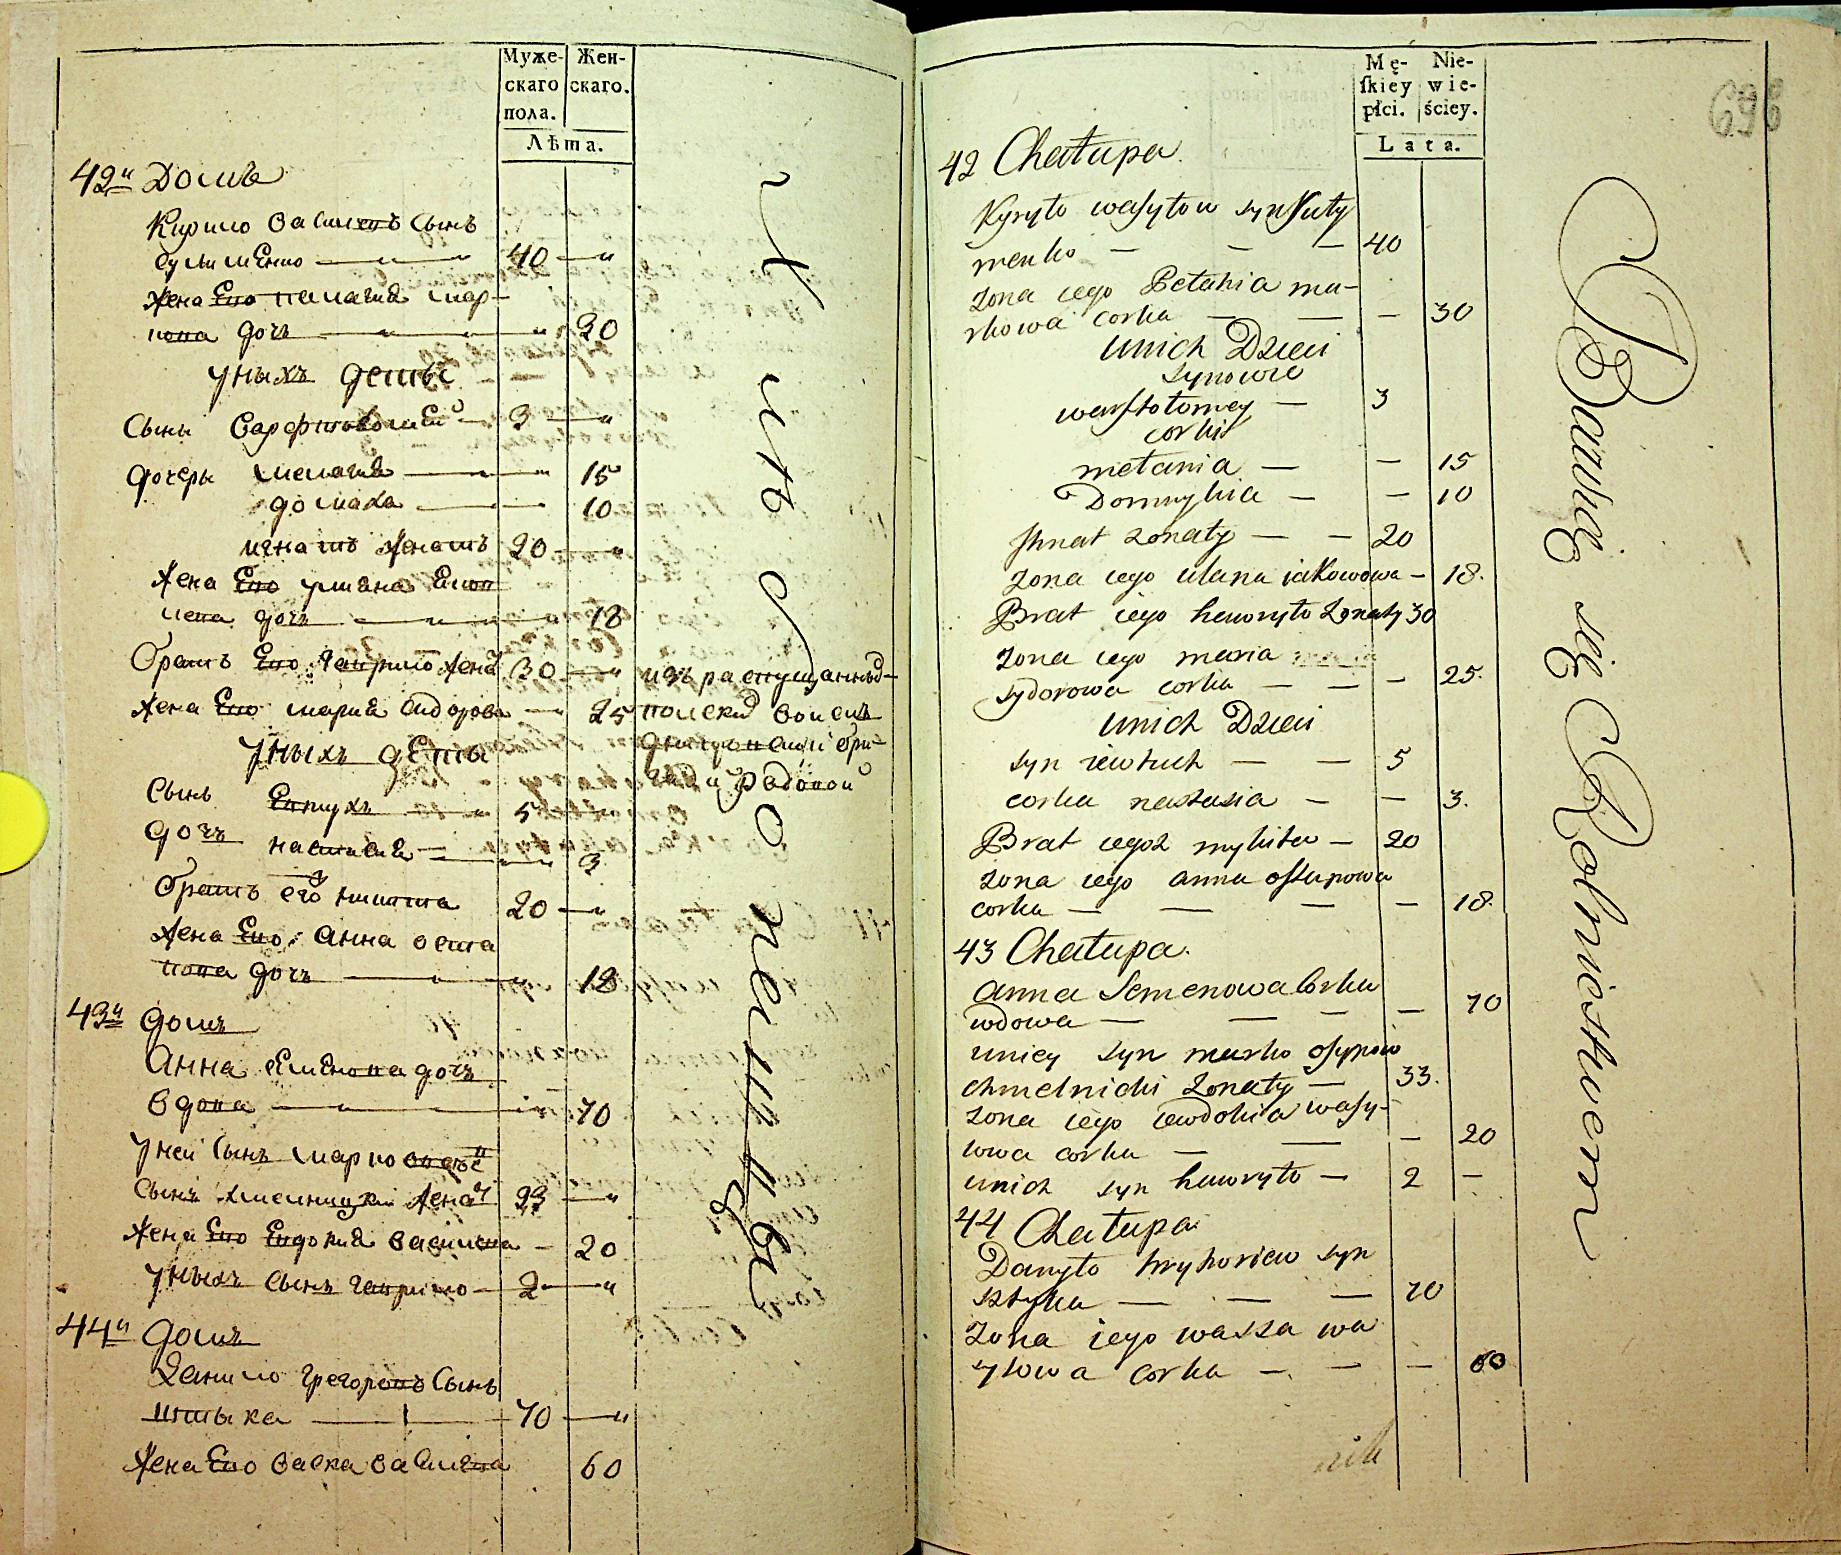 Муже-
скаго
пола.
Жен-
скаго.
Лѣта.
42й Домъ
Кирило Василевъ Сынъ
40 — "
Жена Его Палагия Мар-
кова дочь — " 30
У ныхъ дети
Сынъ Варфоломей — 3 — "
дочеры Мелания — " 15
Домаха — 10
Игнатъ женатъ 20 — "
Жена Его Уляна Яков
лева дочь — 18
Братъ Его Гаврило женат 30 — "
Жена Его Мария Сидорова — 25
У ныхъ дети
Сынъ Евтухъ — 5
дочь Настасия — 3
Братъ его Никита 20 — "
Жена Его Анна Оста
пова дочь — 18
43й домъ
Анна Семенова дочь
вдова — 70
У ней Сынъ Марко
Сынъ Хмелницкий женат 33 — "
Жена Его Евдокия Василева — 20
У ныхъ Сынъ Гаврило — 2 — "
44й домъ
Данило Грегоровъ Сынъ
Штыка — 70 — "
Жена Его Васка Василева 60
изъ распущанныхъ
полскихъ войскъ
Хлѣбопашцы
696
Mę-
ſkiey
płci.
Nie-
wie-
ściey.
Lata.
42 Chałupa
Kyryło wasylow syn Kuły
menko — — — 40
zona iego Pelahia ma-
rkowa corka — — — 30
unich Dzieci
synowie
warfłołomey — 3
corki
melania — — 15
Domnykia — — 10
Ihnat zonaty — — 20
zona iego ulana iakowowa — 18.
Brat iego hawryło zonaty 30
zona iego maria
sydorowa corka — — — 25.
unich Dzieci
syn iewtuch — — 5
corka nastasia — — 3.
Brat iegoż mykita — 20
zona iego anna ostapowa
corka — — — — 18.
43 Chałupa.
anna Semenowa Corka
wdowa — — — — 70
uniey syn marko osypow
chmelnicki zonaty — 33.
zona iego iewdokia wasy-
lowa corka — — — 20
unich syn hawryło — 2 —
44 Chałupa
Danyło hryhoriew syn
sztyka — — — 70
zona iego waska wa
sylowa corka — — — 60
Bawią się Rolnictwem